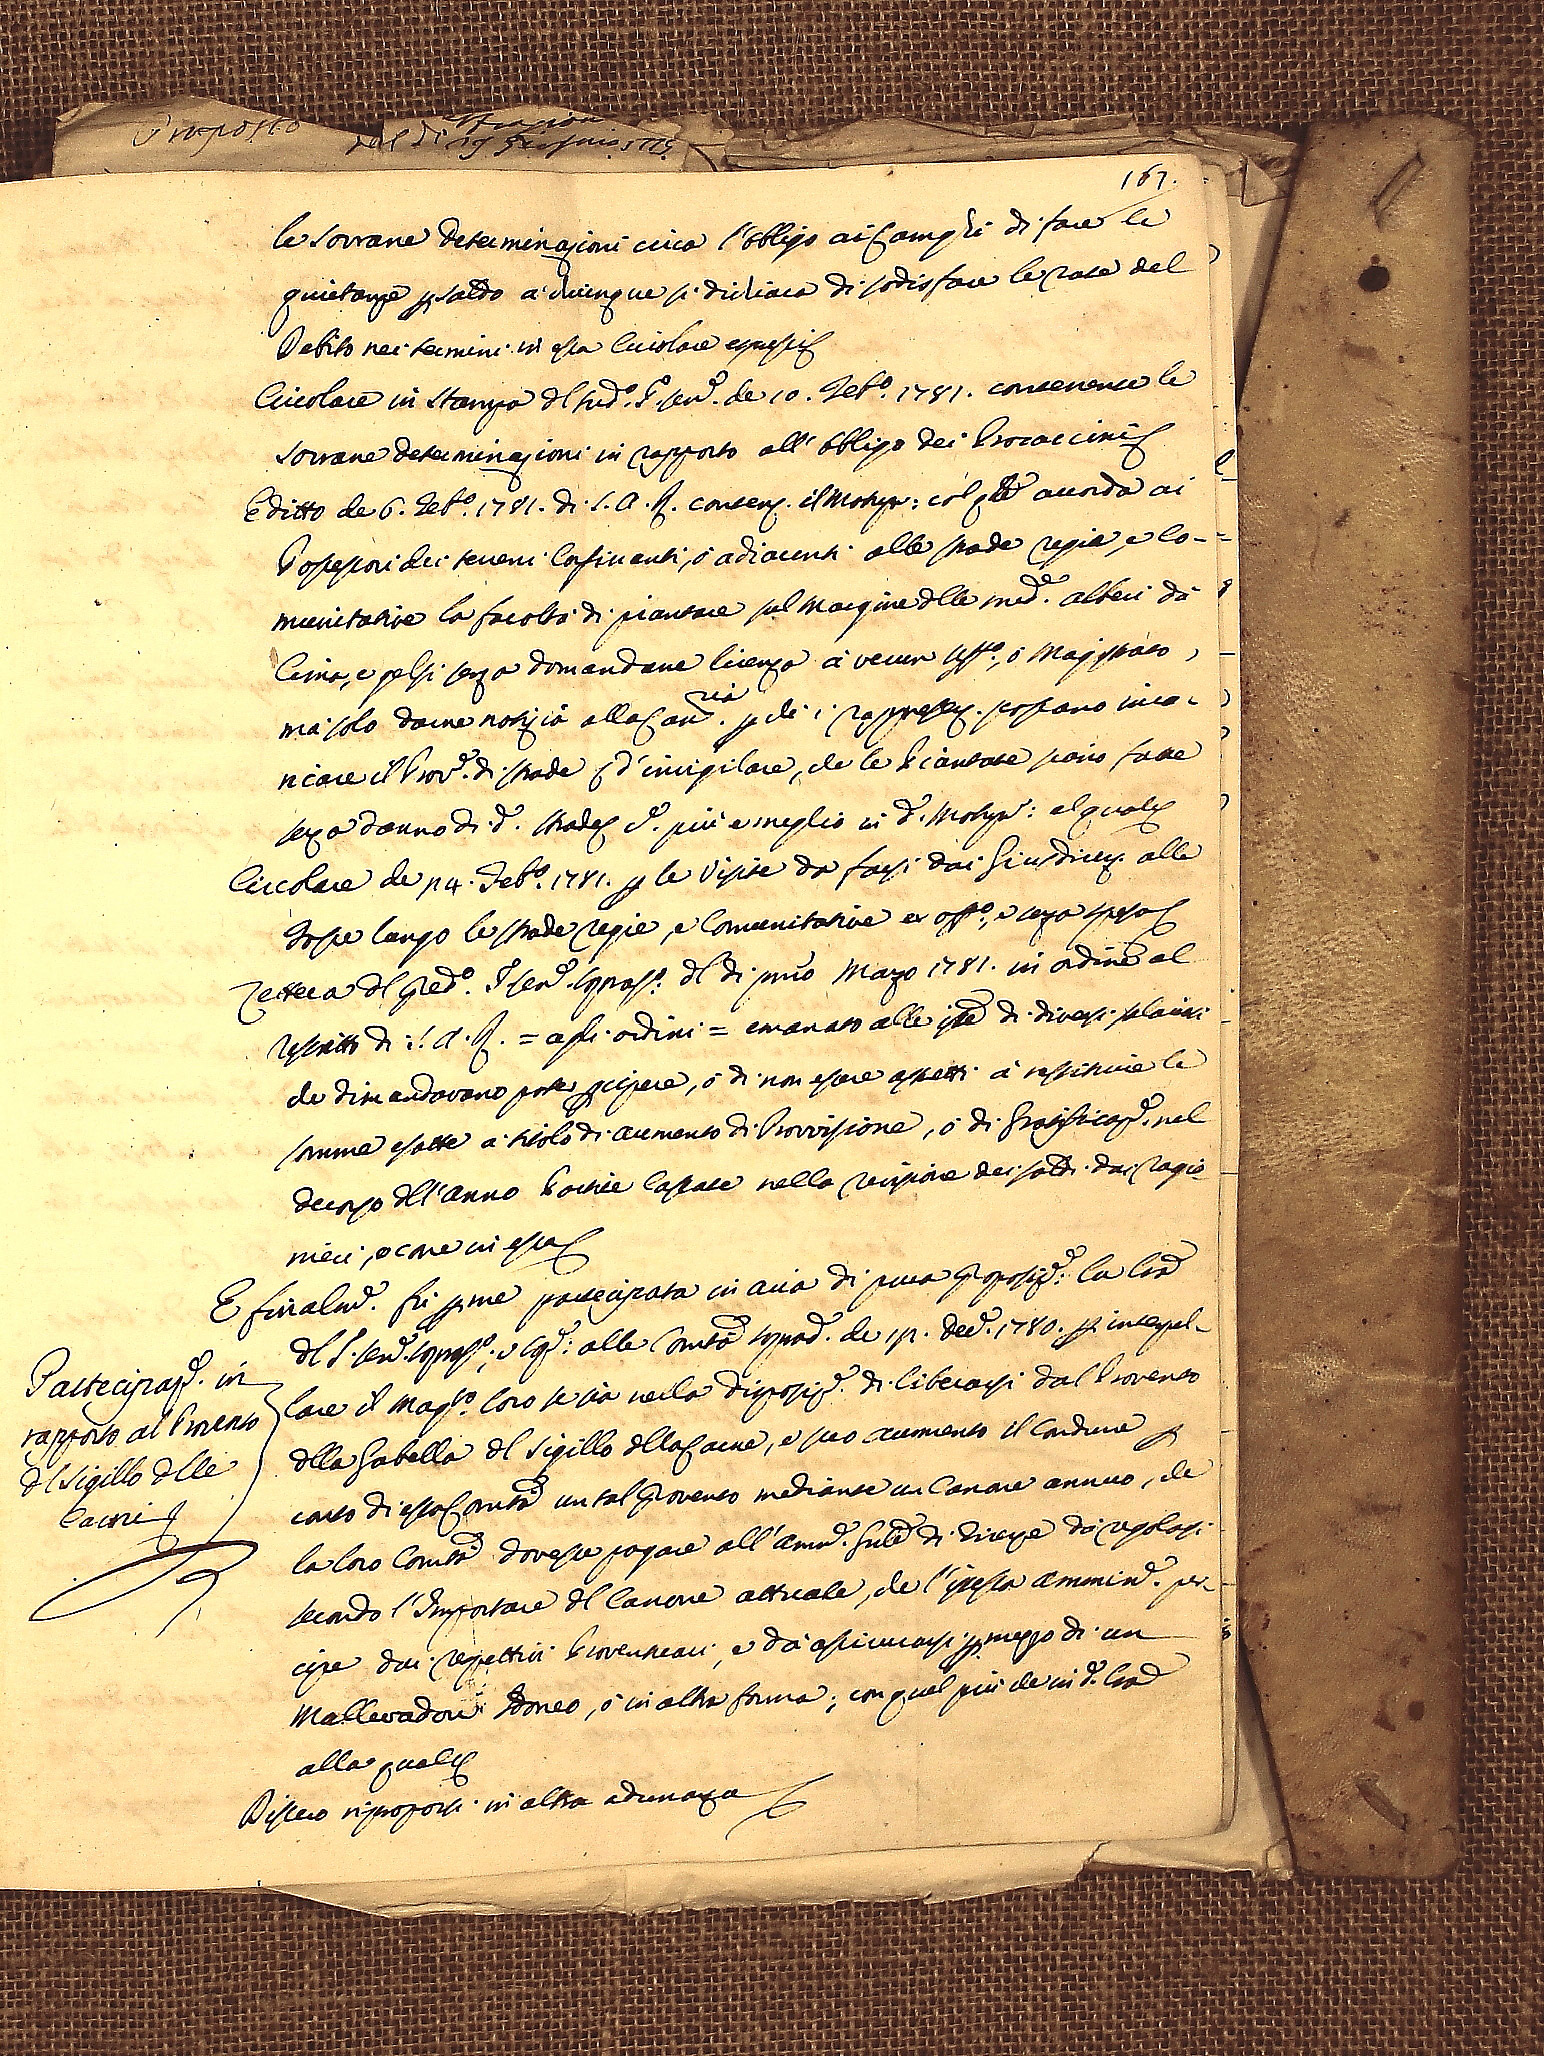 Proposto del dì
167.
le Sovrane determinazioni circa l'obbligo ai Camarli. di fare le
quietanze p saldo a chiunque si dichiara di sodisfare le rate del
Debito nei termini in essa Circolare espressi
Circolare in Stampa del sud.o S. Sen.e de 10. Feb.o 1781. contenente le
Sovrane determinazioni in rapporto all'obbligo dei Procaccini
Editto de 6. Feb.o 1781. di S. A. R. conten. il Motupr: col qle accorda ai
Possessori dei terreni Confinanti, ò adiacenti alle strade regie, e Co-
munitative la facoltà di piantare sul margine delle med.e alberi da
Cima, e gelsi senza domandare licenza à verun Uff.o, ò Magistrato,
mà solo darne notizia alla Can.ria p che i rappresen. possano inca-
ricare il Prov.e di strade d'invigilare, che le Piantate siano fatte
senza danno di d.e strade &. più e meglio in d.o Motupr: al quale
Circolare de 24. Feb.o 1781. p le Visite da farsi dai Giusdicen. alle
Fosse lungo le strade regie, e Comunitative ex off.o, e senza spesa
Lettera del pred.o S. Sen.e Sopras.o del dì primo Marzo 1781. in ordine al
rescritto di S. A. R. = agli ordini = emanato alle istze di diversi
che dimandavano poter pcipere, ò di non essere astretti à restituire le
somme esatte a titolo di aumento di Provvisione, ò di gratificaz.e nel
decorso dell'anno Partite Cassate nella revisione dei saldi dai ragio-
nieri, e come in essa
E finalm.e fù p me partecipata in aria di pura proposiz.e: la Lra
del S. Sen.e Sopras.o; e Seg.: alle Comtà soprad. de 12. Dec.e 1780. p interpel-
lare il Mag.to loro se sia nella disposiz.e di liberarsi dal Provento
della Gabella del Sigillo della Carne, e suo aumento il Condurre p
conto di essa Comtà un tal Provento mediante un Canone annuo, che
la loro Comtà dovesse pagare all'Amm.e Gnle di Firenze dà regolarsi
secondo l'Importare del Canone attuale, che l'istessa Ammin.e per-
cipe dai respettivi Proventuari, e dà assicurarsi p mezzo di un
Mallevadore Idoneo, ò in altra forma; con quel più che in d.a Lra
alla quale
Dissero riproporsi in altra adunanza
Partecipaz.e in
rapporto al Provento
del Sigillo delle
Carni